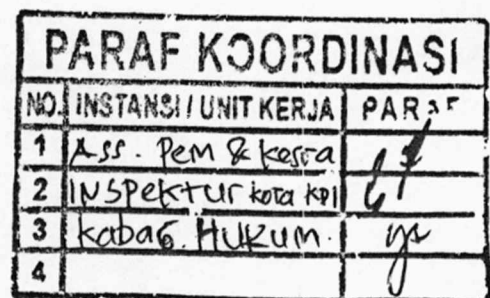 PARAF KOORDINASI
NO. INSTANSI / UNIT KERJA PARAF
1 Ass. Pem & Kesra
2 INSPEKTUR KOTA KPI
3 KABAG. HUKUM.
4